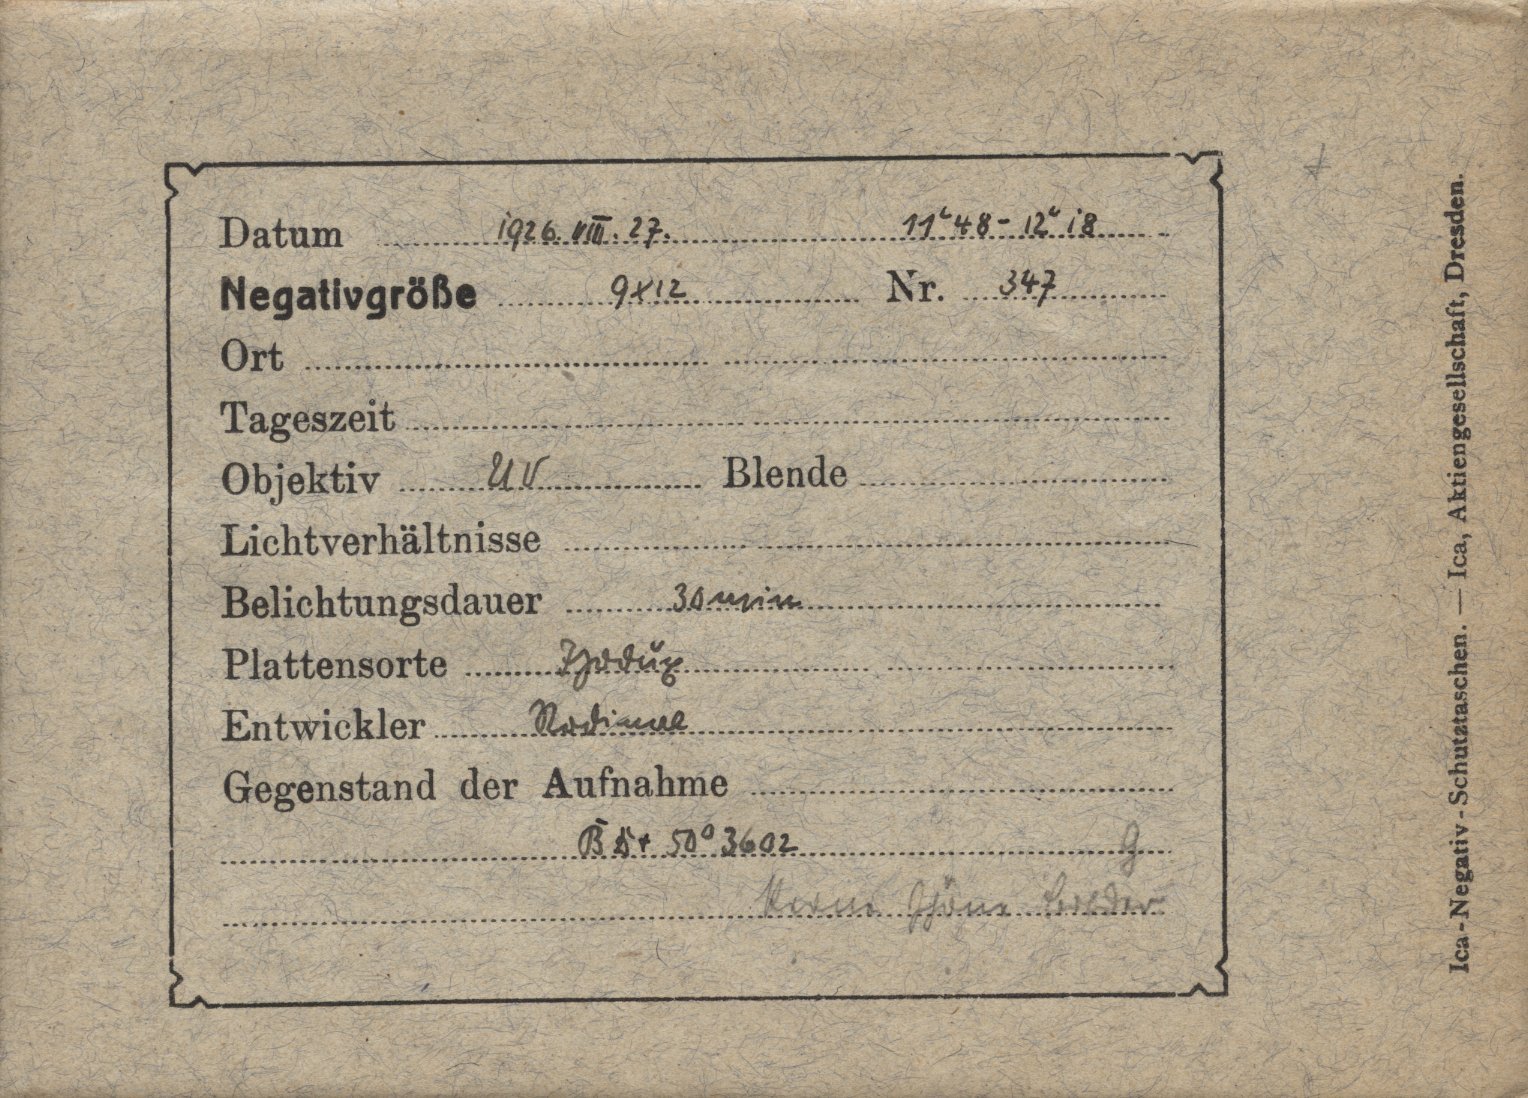 Datum 1926. VIII. 27. 11ᵘ48 - 12ᵘ18
Negativgröße 9x12 Nr. 347
Ort
Tageszeit
Objektiv UV Blende
Lichtverhältnisse
Belichtungsdauer 30 min
Plattensorte
Entwickler Rodinal
Gegenstand der Aufnahme
BD+ 50° 3602 g
Bilder
Ica-Negativ-Schutztaschen. — Ica, Aktiengesellschaft, Dresden.